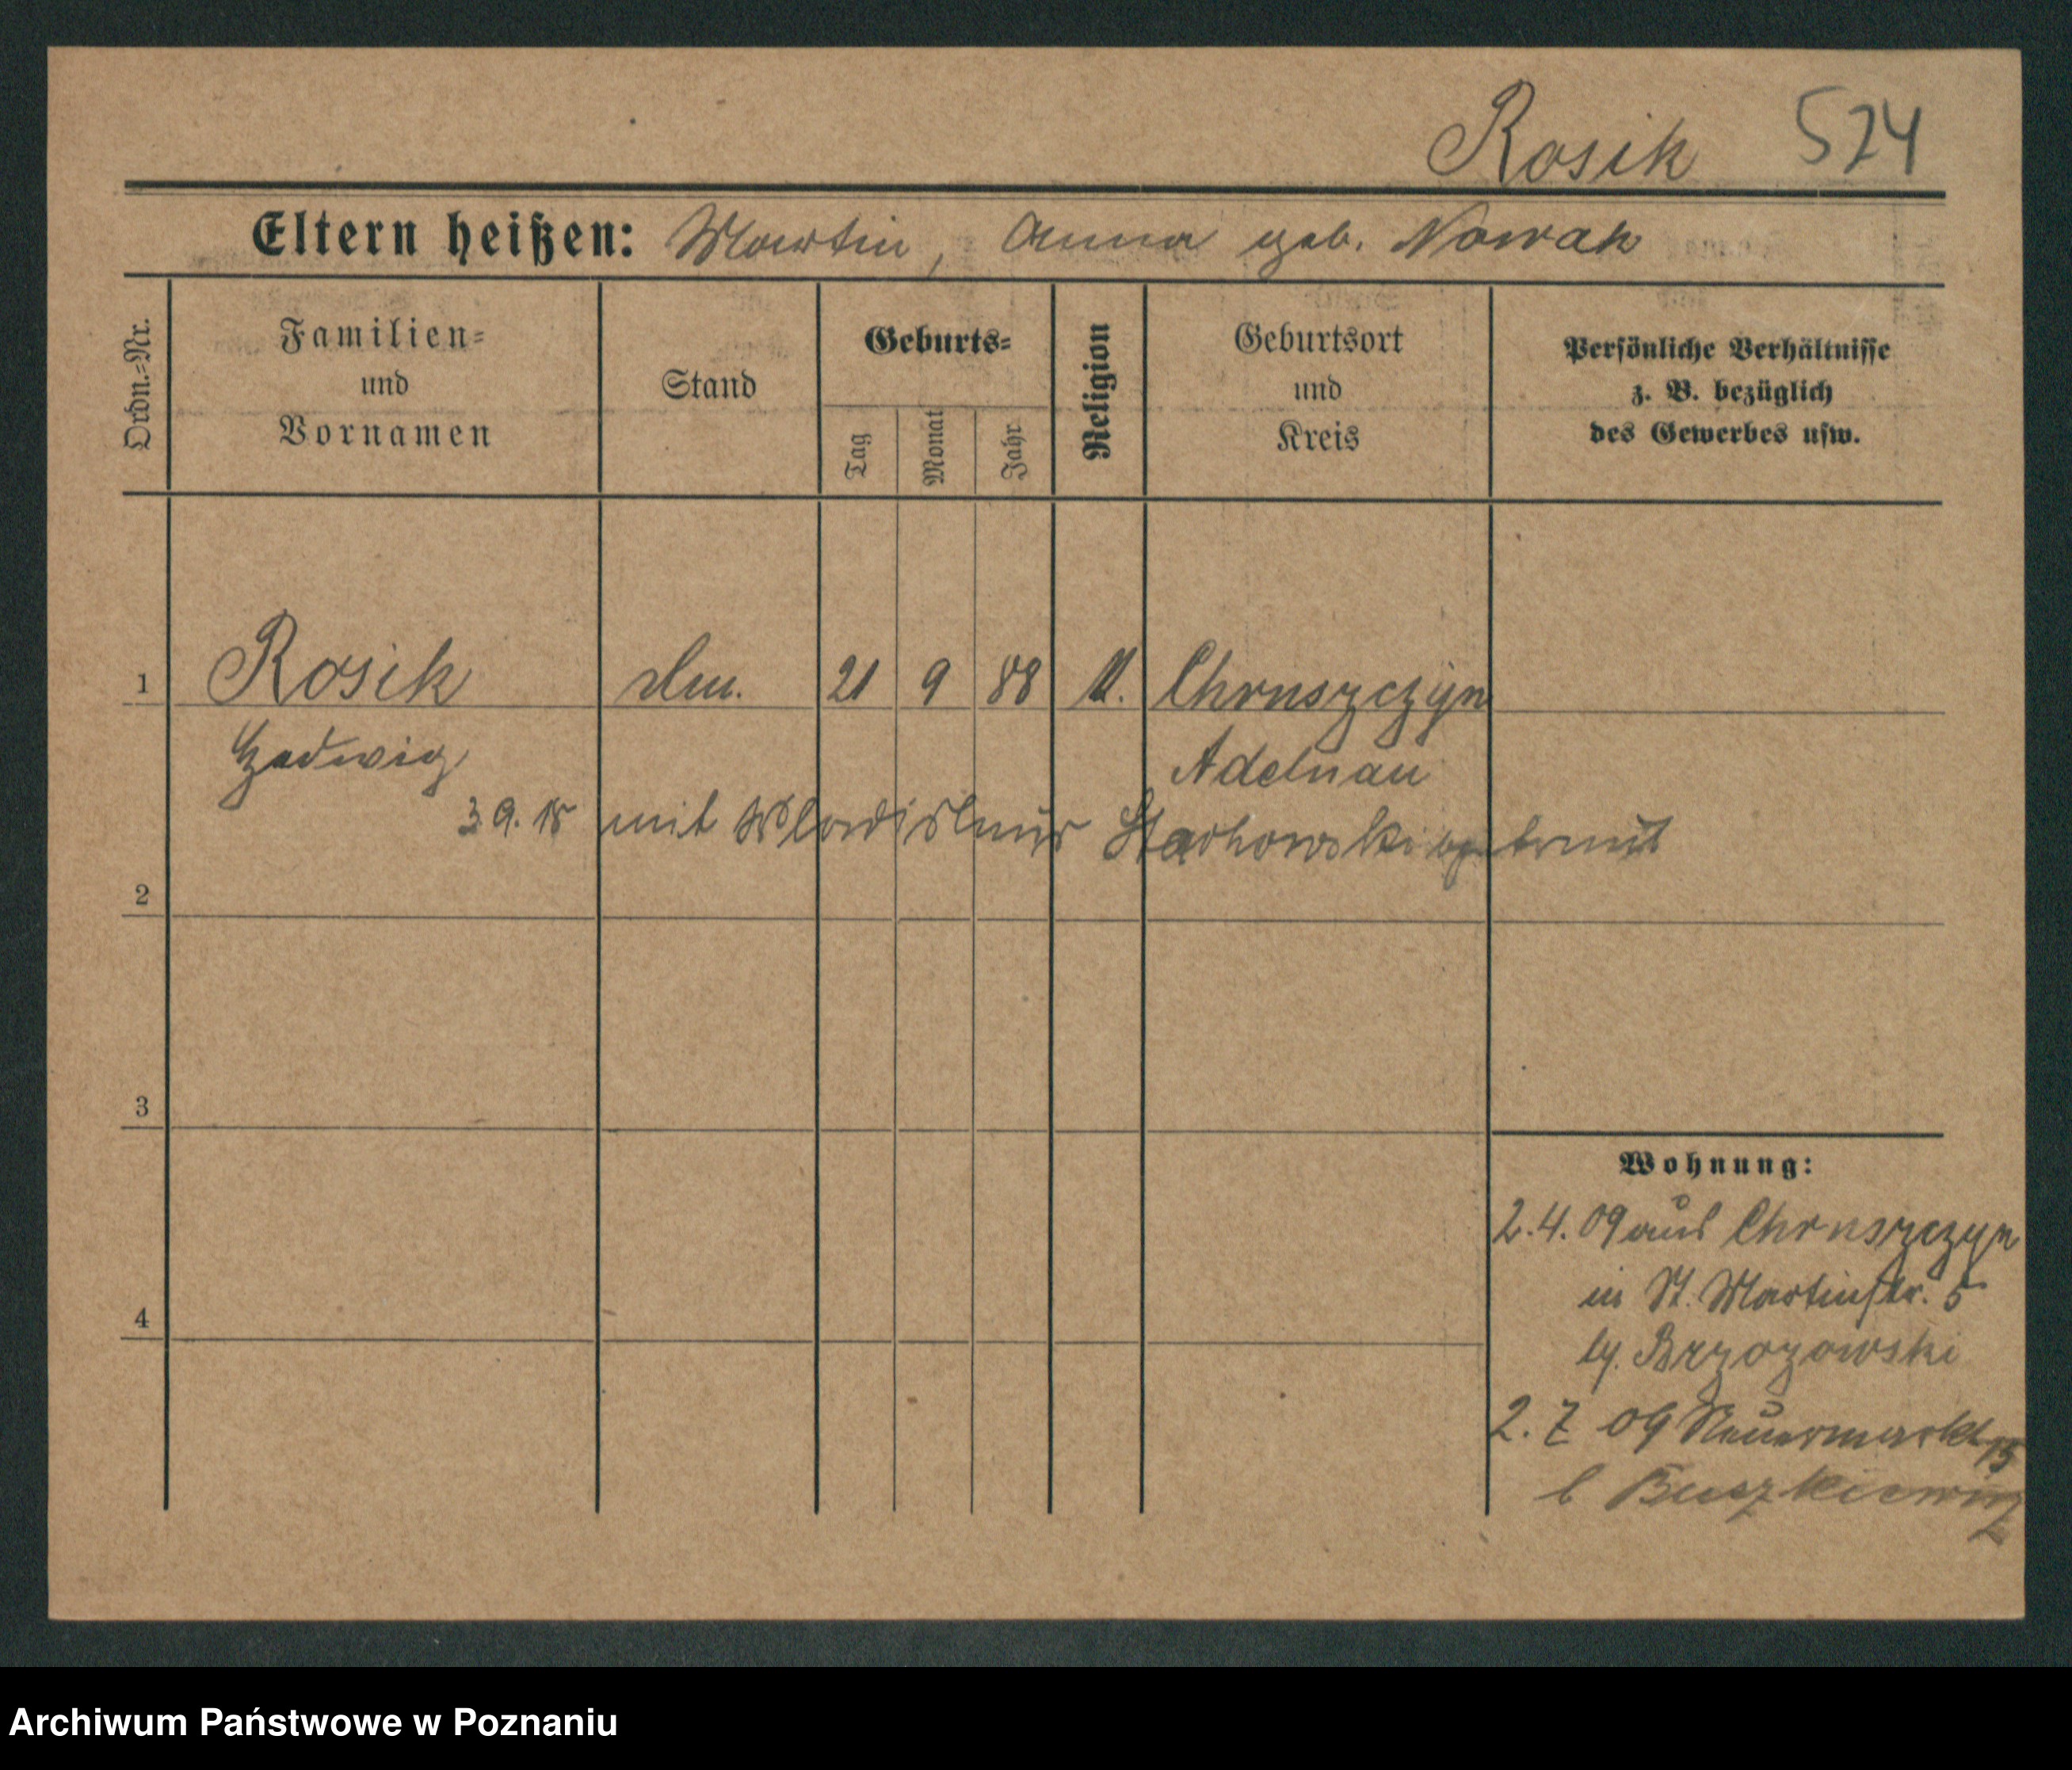 Rosik 524
Eltern heißen: Martin, Anna geb. Nowak
Ordn.=Nr.
Familien=
und
Vornamen
Stand
Geburts=
Tag
Monat
Jahr
Religion
Geburtsort
und
Kreis
Persönliche Verhältnisse
z. B. bezüglich
des Gewerbes usw.
1 Rosik 21 9 88 Chruszczyn
Hedwig Adelnau
3 9. 18 mit Wladislaus Stachowski getraut
2
3
4
Wohnung:
2.4.09 aus Chruszczyn
in St. Martinstr. 5
by. Brzozowski
2. 7 09 Neuermarkt 13
b Buszkiewicz
Archiwum Państwowe w Poznaniu